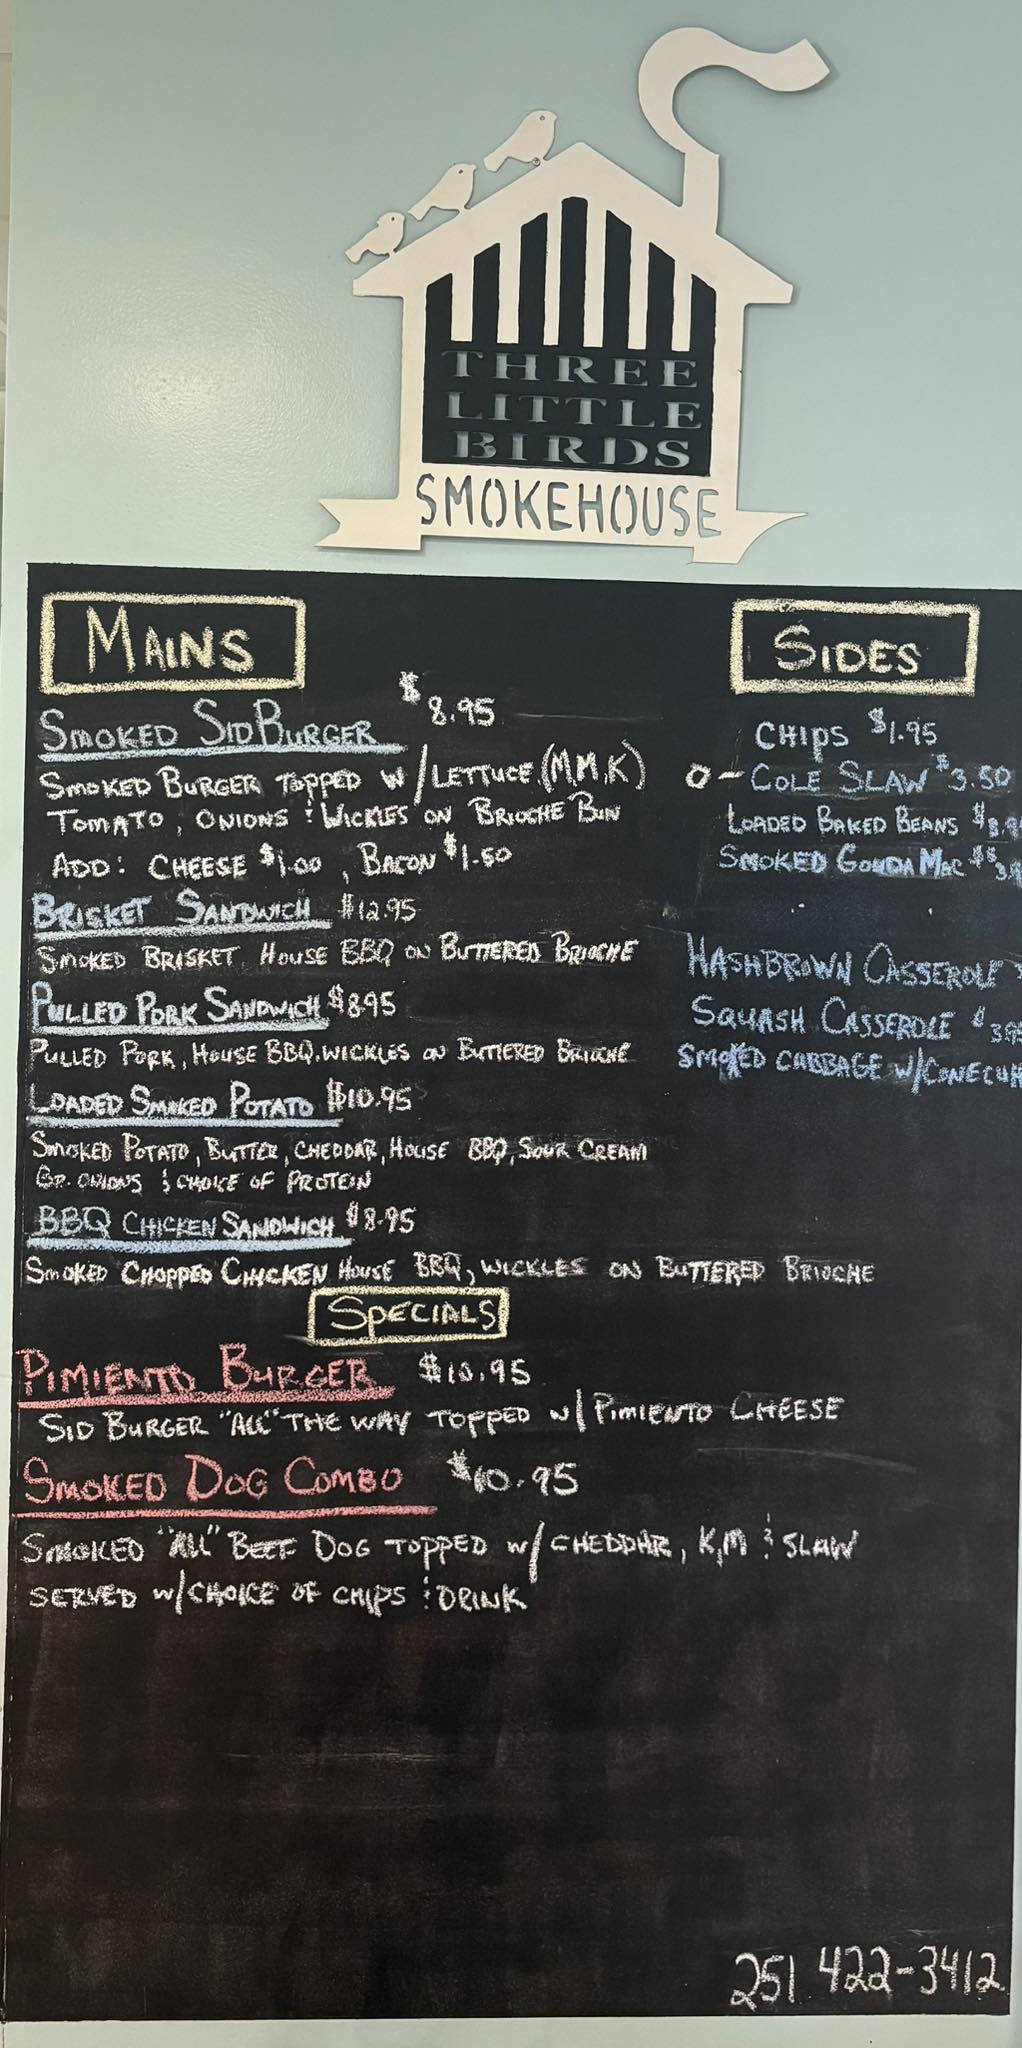 THREE
LITTLE
BIRDS
SMOKEHOUSE
MAINS
SMOKED SIDBURGER $8.95
SMOKED BURGER TOPPED W/LETTUCE (M,M,K)
TOMATO, ONIONS & WICKLES ON BRIOCHE BUN
ADD: CHEESE $1.00, BACON $1.50
BRISKET SANDWICH $12.95
SMOKED BRISKET, HOUSE BBQ ON BUTTERED BRIOCHE
PULLED PORK SANDWICH $8.95
PULLED PORK, HOUSE BBQ, WICKLES ON BUTTERED BRIOCHE
LOADED SMOKED POTATO $10.95
SMOKED POTATO, BUTTER, CHEDDAR, HOUSE BBQ, SOUR CREAM
GR. ONIONS & CHOICE OF PROTEIN
BBQ CHICKEN SANDWICH $8.95
SMOKED CHOPPED CHICKEN HOUSE BBQ, WICKLES ON BUTTERED BRIOCHE
SPECIALS
PIMIENTO BURGER $10.95
SID BURGER "ALL" THE WAY TOPPED W/PIMIENTO CHEESE
SMOKED DOG COMBO $10.95
SMOKED "ALL" BEEF DOG TOPPED W/CHEDDAR, K,M & SLAW
SERVED W/CHOICE OF CHIPS & DRINK
SIDES
CHIPS $1.95
O - COLE SLAW $3.50
LOADED BAKED BEANS
SMOKED GOUDA MAC
HASHBROWN CASSEROLE
SQUASH CASSEROLE
SMOKED CABBAGE W/CONECUH
251 422-3412